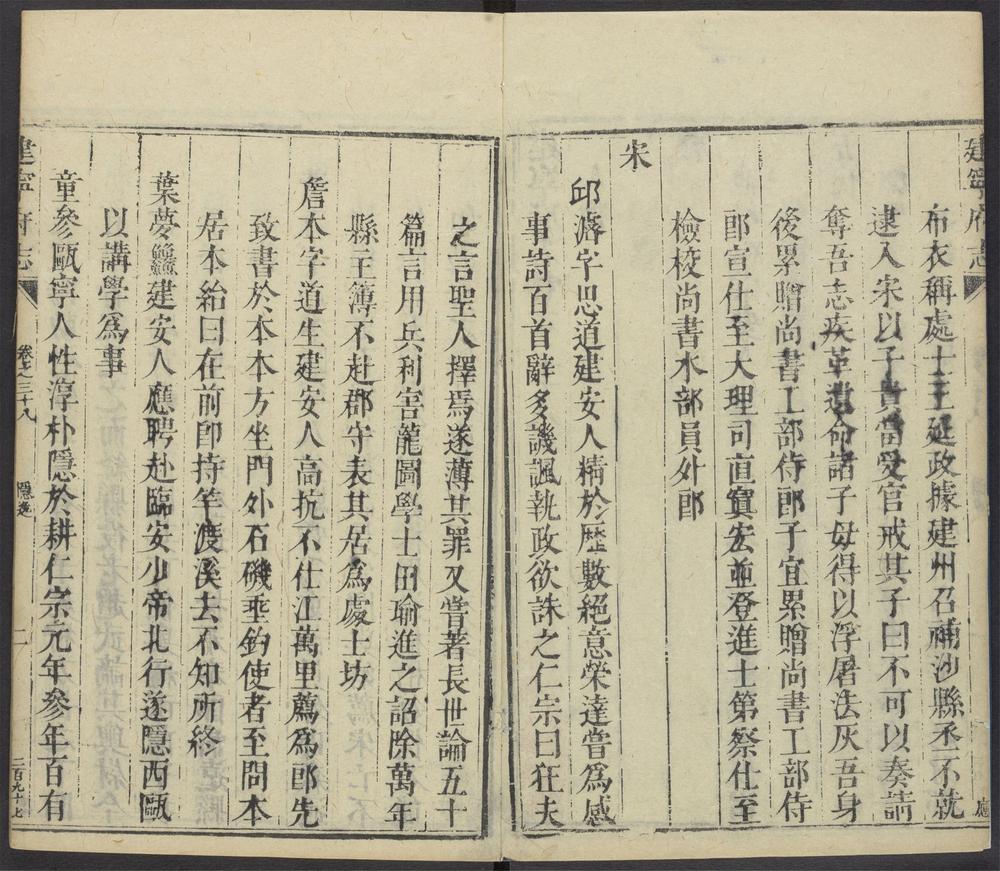 建寧府志
布衣稱處士王延政據建州召補沙縣丞不就
逮入宋以子貴當受官戒其子曰不可以奏請
奪吾志疾革遺命諸子毋得以浮屠法灰吾身
後累贈尚書工部侍郎子宜累贈尚書工部侍
郎宣仕至大理司直寘宏並登進士第察仕至
檢校尚書水部員外郎
宋
邱濬字思道建安人精於歷數絕意榮達嘗為感
事詩百首辭多譏諷執政欲誅之仁宗曰狂夫
之言聖人擇焉遂薄其罪又嘗著長世論五十
篇言用兵利害龍圖學士田瑜進之詔除萬年
縣主簿不赴郡守表其居為處士坊
詹本字道生建安人高抗不仕江萬里薦為郎先
致書於本本方坐門外石磯垂釣使者至問本
居本紿曰在前卽持竿渡溪去不知所終
葉夢鱻建安人應聘赴臨安少帝北行遂隱西甌
以講學為事
童參甌寧人性淳朴隱於耕仁宗元年參年百有
建寧府志
卷之三十八
隱逸
二
二百九十七